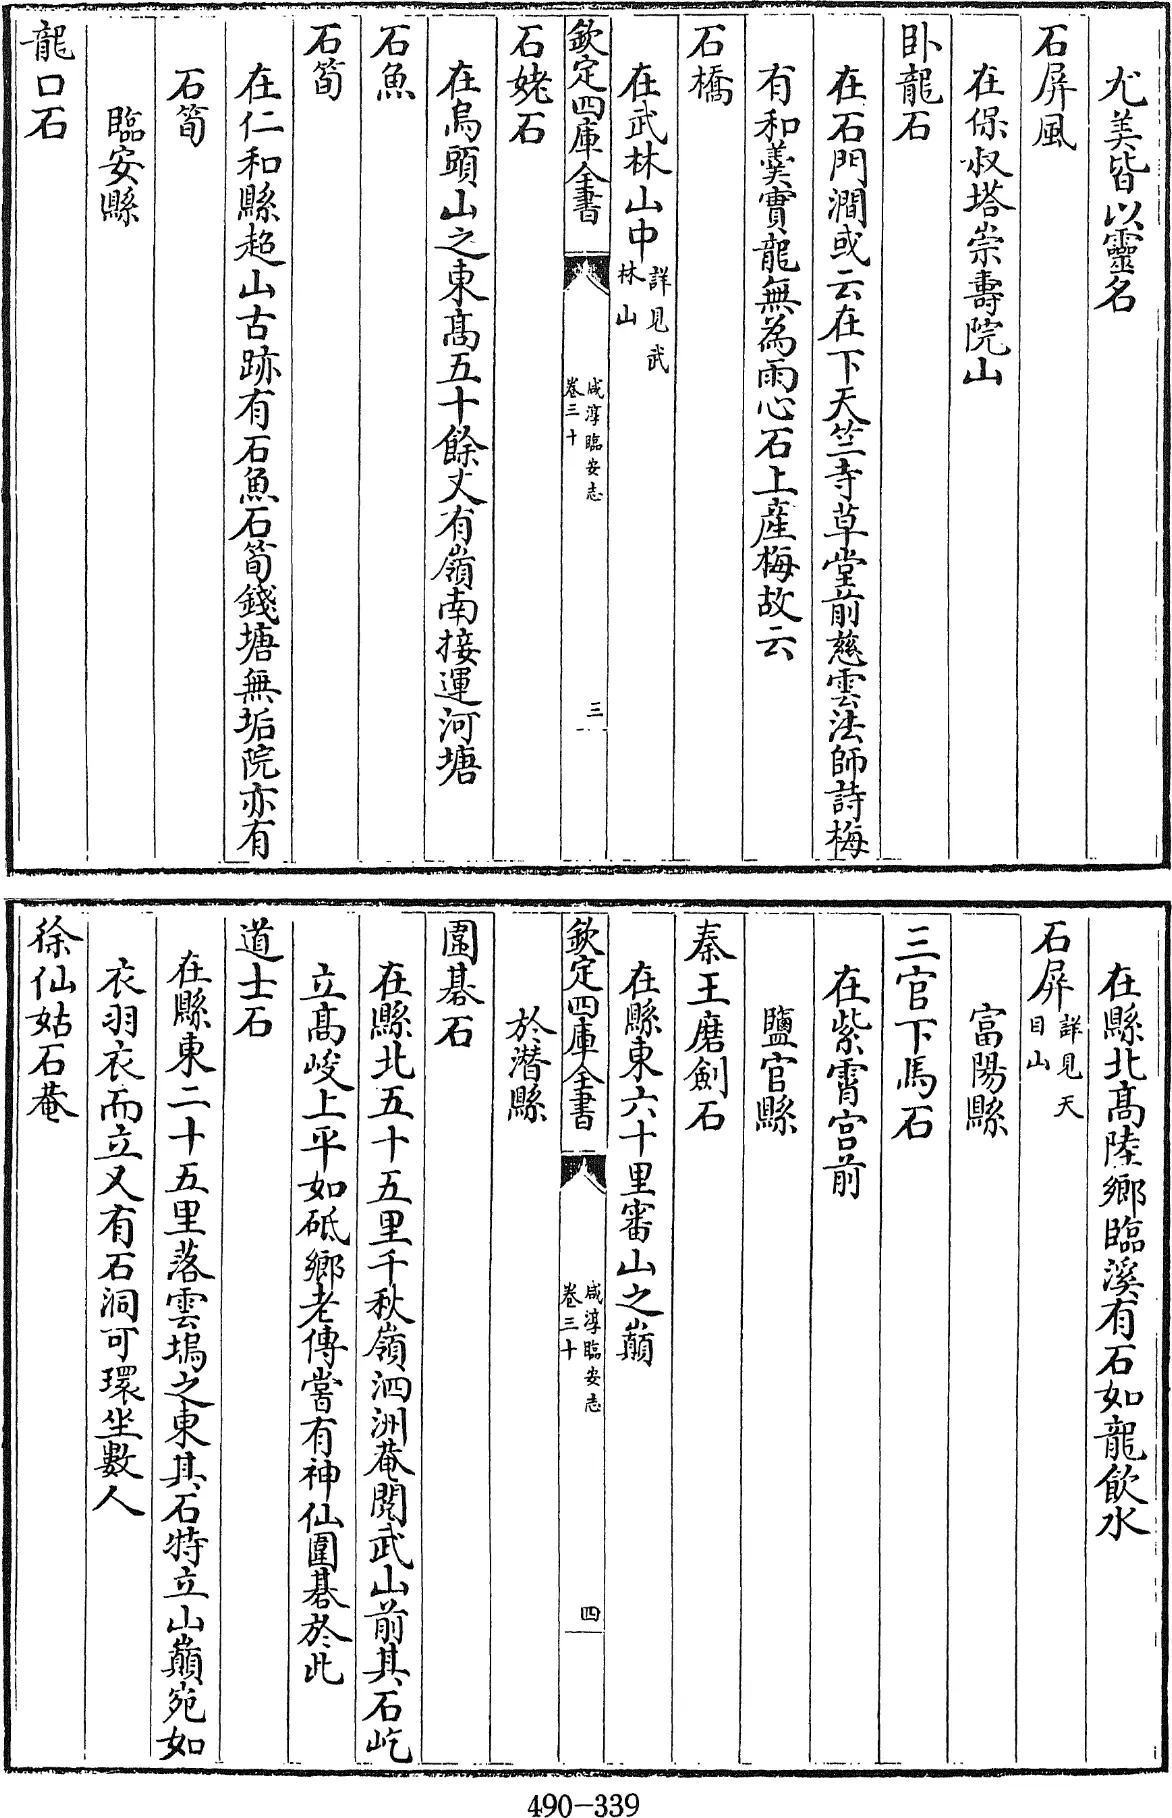 尤美皆以靈名
石屏風
在保叔塔崇壽院山
卧龍石
在石門澗或云在下天竺寺草堂前慈雲法師詩梅
有和羹實龍無為雨心石上産梅故云
石橋
在武林山中詳見武林山
欽定四庫全書
咸淳臨安志
卷三十
三
石姥石
在烏頭山之東髙五十餘丈有嶺南接運河塘
石魚
石筍
在仁和縣超山古跡有石魚石筍錢塘無垢院亦有
石筍
臨安縣
龍口石
在縣北髙陸鄉臨溪有石如龍飲水
石屏詳見天目山
富陽縣
三官下馬石
在紫霄宫前
鹽官縣
秦王磨劍石
在縣東六十里審山之巔
欽定四庫全書
咸淳臨安志
卷三十
四
於潛縣
圍碁石
在縣北五十五里千秋嶺泗洲菴閱武山前其石屹
立髙峻上平如砥鄉老傳嘗有神仙圍碁於此
道士石
在縣東二十五里落雲塢之東其石特立山巔宛如
衣羽衣而立又有石洞可環坐數人
徐仙姑石菴
490-339